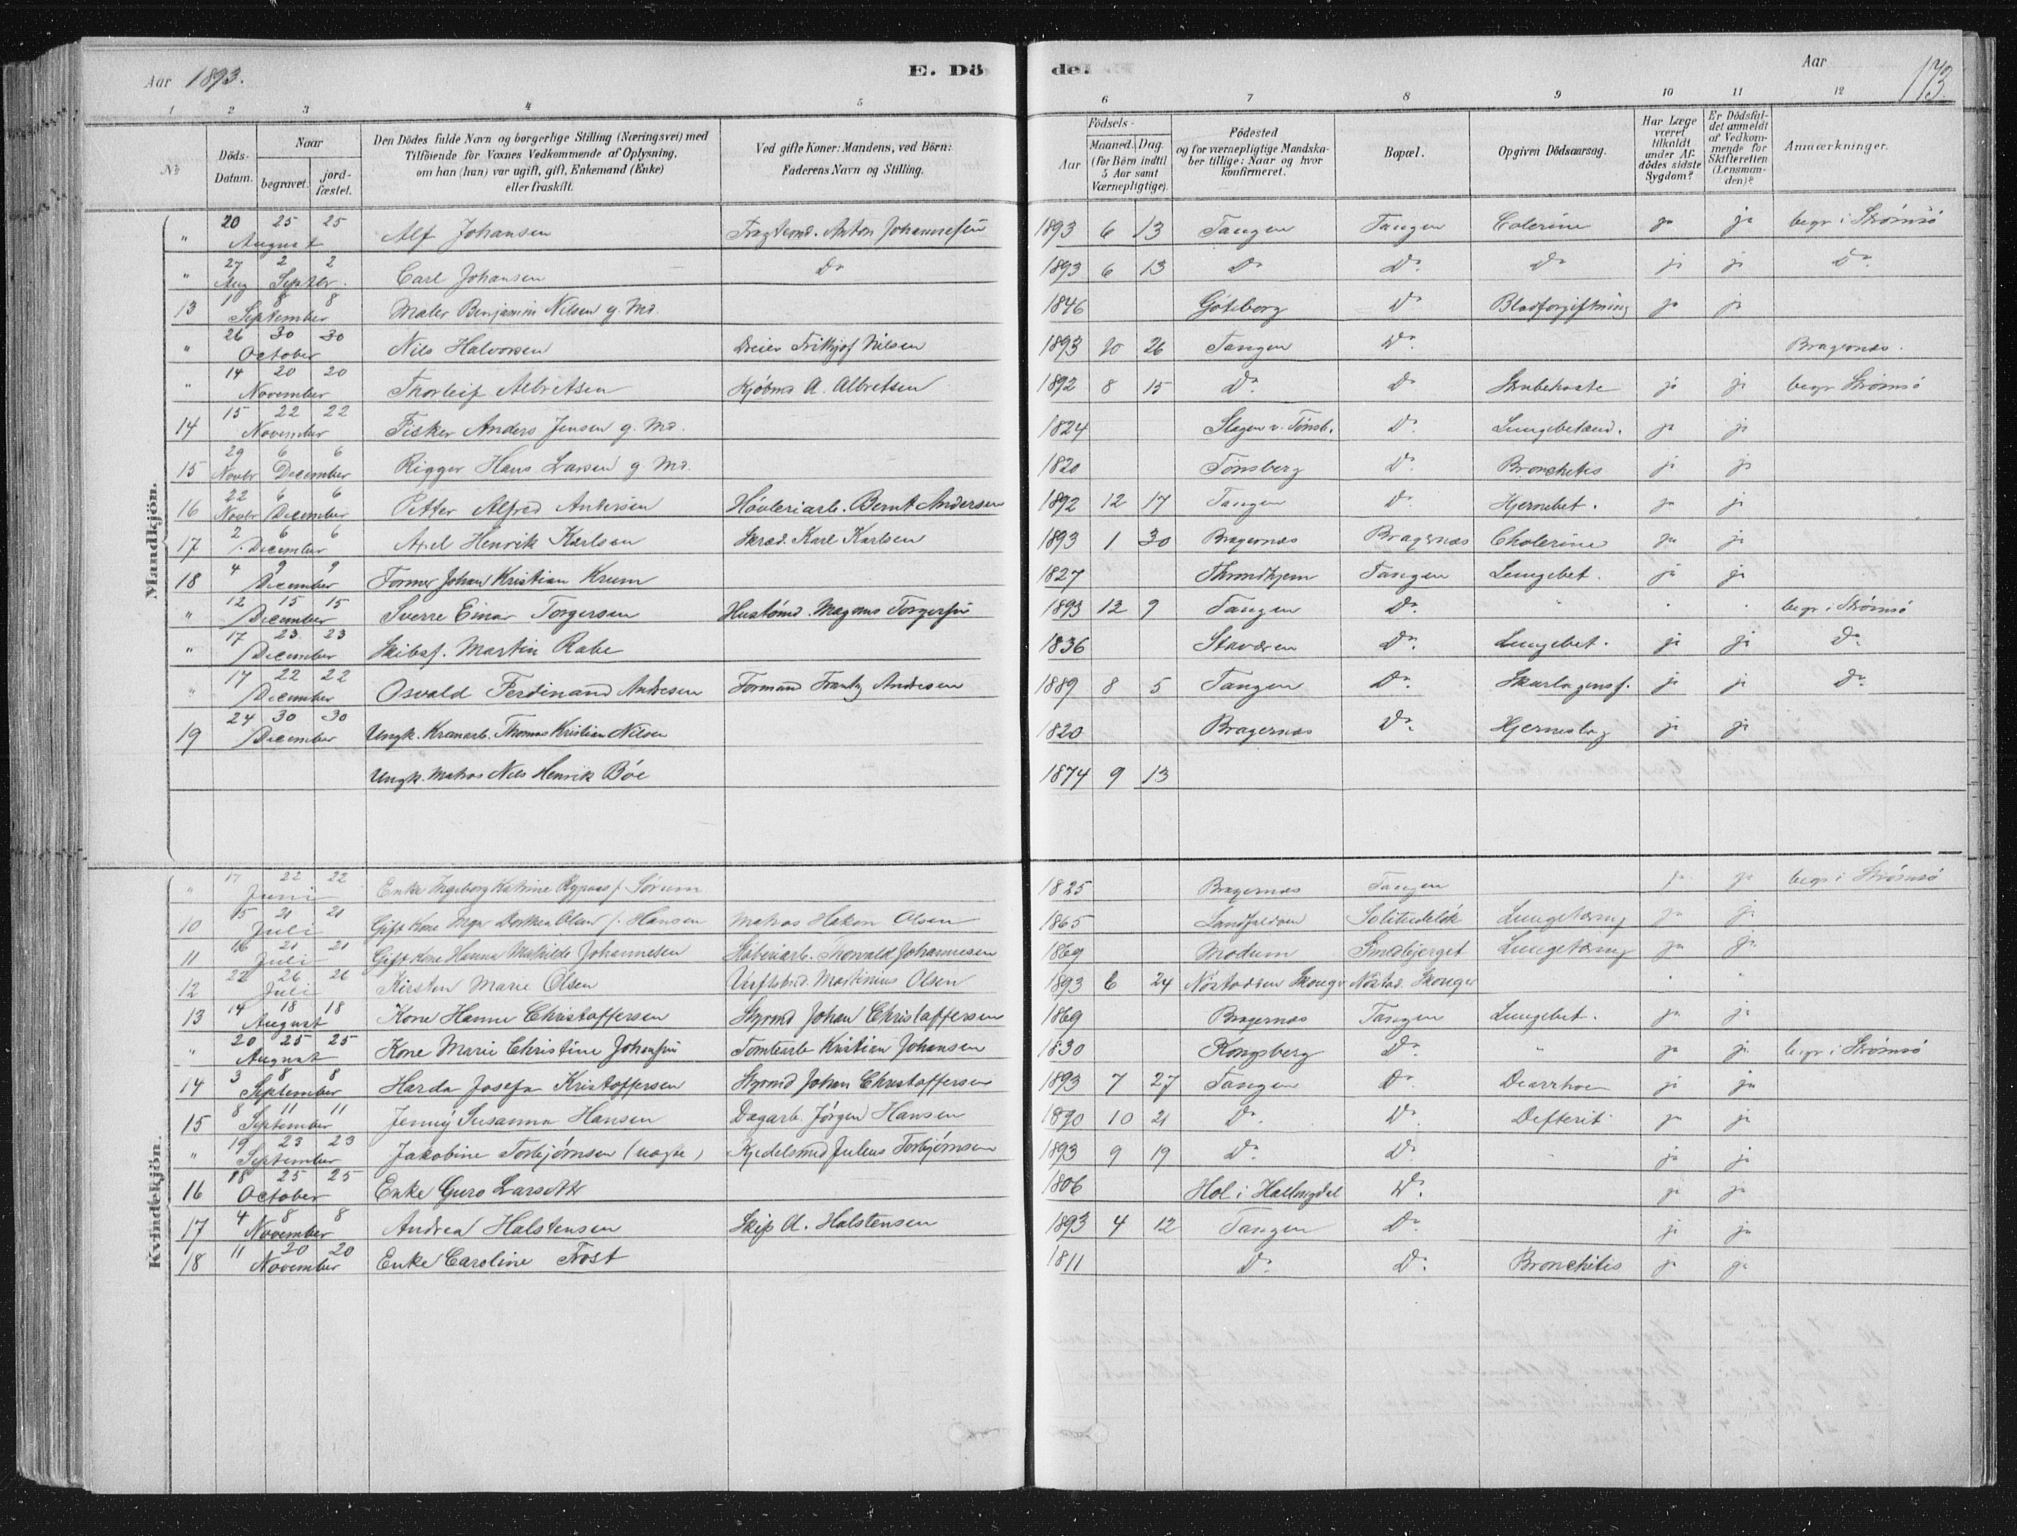 Aar 1893.
E. Dö
de.
Aar
173.
1 2 3 4 5 6 7 8 9 10 11 12
No
Döds-Datum.
Naar
begravet.
jord-fæstet.
Den Dödes fulde Navn og borgerlige Stilling (Næringsvei) med
Tilföiende for Voxnes Vedkommende af Oplysning,
om han (hun) var ugift, gift, Enkemand (Enke)
eller fraskilt.
Ved gifte Koner: Mandens, ved Börn:
Faderens Navn og Stilling.
Födsels-
Aar
Maaned. Dag.
(for Börn indtil
5 Aar samt
Værnepligtige).
Födested
og for værnepligtige Mandska-
ber tillige: Naar og hvor
konfirmeret.
Bopæl.
Opgiven Dödsaarsag.
Har Læge
været
tilkaldt
under Af-
dödes sidste
Sygdom?
Er Dödsfal-
det anmeldt
af Vedkom-
mende for
Skifteretten
(Lensman-
den)?
Anmærkninger.
Mandkjön.
" 20 August 25 25 Alf Johansen Anton Johannesen 1893 6 13 Tangen Tangen Colerine ja ja begr i Strømsø
" 27 Aug 2 Septbr. 2 Carl Johansen Do 1893 6 13 Do Do Do ja ja Do
13 1 September 8 8 Maler Benjamin Nilsen g. Md. 1846 Göteborg Do Blodforgiftning ja ja
" 26 October 30 30 Nils Halvorsen Dreier Frithjof Nilsen 1893 20 26 Tangen Do Bragernæs.
" 14 November 20 20 Thorleif Albretsen Kjøbmd A. Albretsen 1892 8 15 Do Do Strubehoste ja ja begr Strømsø
14 15 November 22 22 Fisker Anders Jensen g. Md. 1824 Slagen v. Tönsb. Do Lungebetænd. ja ja
15 29 Novbr 6 December 6 Rigger Hans Larsen g. Md. 1820 Tönsberg Do Bronchitis ja ja
16 22 Novbr 6 December 6 Petter Alfred Andersen Høvleriarb. Bernt Andersen 1892 12 17 Tangen Do Hjernebet. ja ja
17 2 December 6 6 Axel Henrik Karlsen Skræd. Karl Karlsen 1893 1 30 Bragernæs Bragernæs Cholerine ja ja
18 4 December 9 9 Former Johan Kristian Krum 1827 Throndhjem Tangen Lungebet. ja ja
" 12 December 15 15 Sverre Einar Torgersen Hustømd. Magnus Torgersen 1893 12 9 Tangen Do " " " begr i Strømsø
" 17 December 23 23 Skibsf. Martin Rabe 1836 Staværen Do Lungebet. ja ja Do
" 17 December 22 22 Osvald Ferdinand Andresen Formand Frantz Andresen 1889 8 5 Tangen Do Skarlagensf. ja ja Do
19 24 December 30 30 Ungk. Kranarb. Thomas Kristian Nilsen 1820 Bragernæs Do Hjerneslag ja ja
Ungk. Matros Nils Henrik Bøe 1874 9 13
Kvindekjön.
" 17 Juni 22 22 Enke Ingeborg Katrine f. Sørum 1825 Bragernæs Tangen ja ja begr i Strømsø
10 15 Juli 21 21 Gift Kone Inga Dorthea Olsen f. Hansen Matros Hakon Olsen 1865 Solitudeløk Lungetæring ja ja
11 16 Juli 21 21 Gift Kone Hanna Mathilde Johannesen Thorvald Johannesen 1869 Modum Smedbjerget Lungetæring ja ja
12 22 Juli 26 26 Kirsten Marie Olsen Martinius Olsen 1893 6 24 Nøstodden Skoger Nøstod. Skoger " "
13 14 August 18 18 Kone Hanne Christoffersen Styrmd Johan Christoffersen 1869 Bragernæs Tangen Lungebet. ja ja
" 20 August 25 25 Kone Marie Christine Johansen Tomtearb Kristian Johansen 1830 Kongsberg Do " ja ja begr i Strømsø
14 3 September 8 8 Harda Josefa Kristoffersen Styrmd Johan Christoffersen 1893 7 27 Tangen Do Diarrhoe ja ja
15 8 September 11 11 Jenny Susanna Hansen Dagarb. Jørgen Hansen 1890 10 21 Do Do Defterit ja ja
" 19 September 23 23 Jakobine Torbjørnsen (uægte) Kjedelsmed Julius Torbjørnsen 1893 9 19 Do Do ja ja
16 18 October 25 25 Enke Guro Larsdtr 1806 Hol i Hallingdal Do ja ja
17 4 November 8 8 Andrea Halstensen Skip A. Halstensen 1893 4 12 Tangen Do ja ja
18 11 November 20 20 Enke Caroline Frost 1811 Do Do Bronchitis ja ja